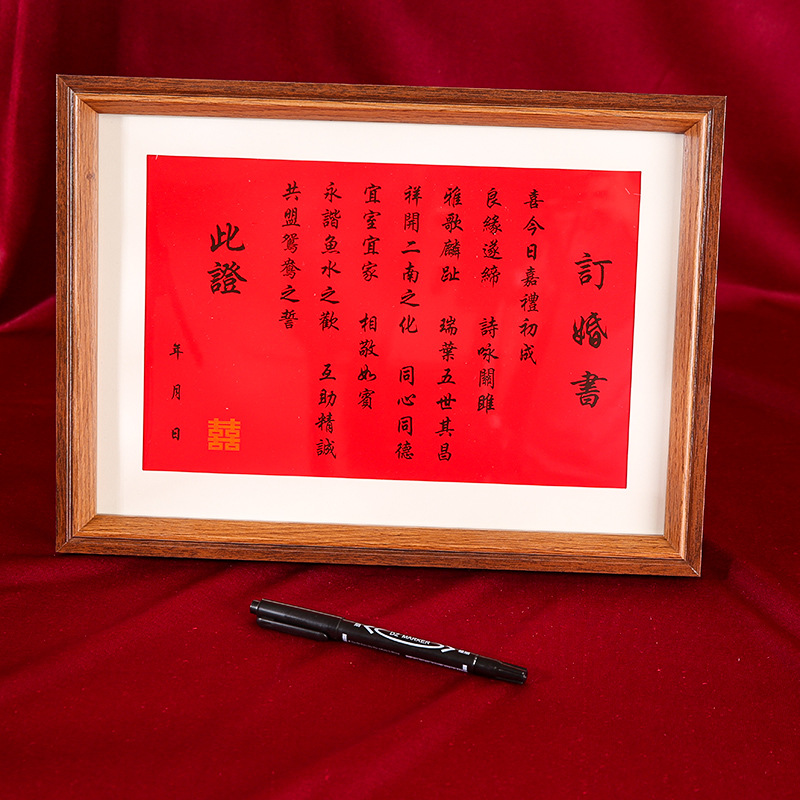 訂婚書
喜今日嘉禮初成
良緣遂締 詩咏關雎
雅歌麟趾 瑞葉五世其昌
祥開二南之化 同心同德
宜室宜家 相敬如賓
永諧魚水之歡 互助精誠
共盟鴛鴦之誓
此證
年月日
囍
DZ MARKER